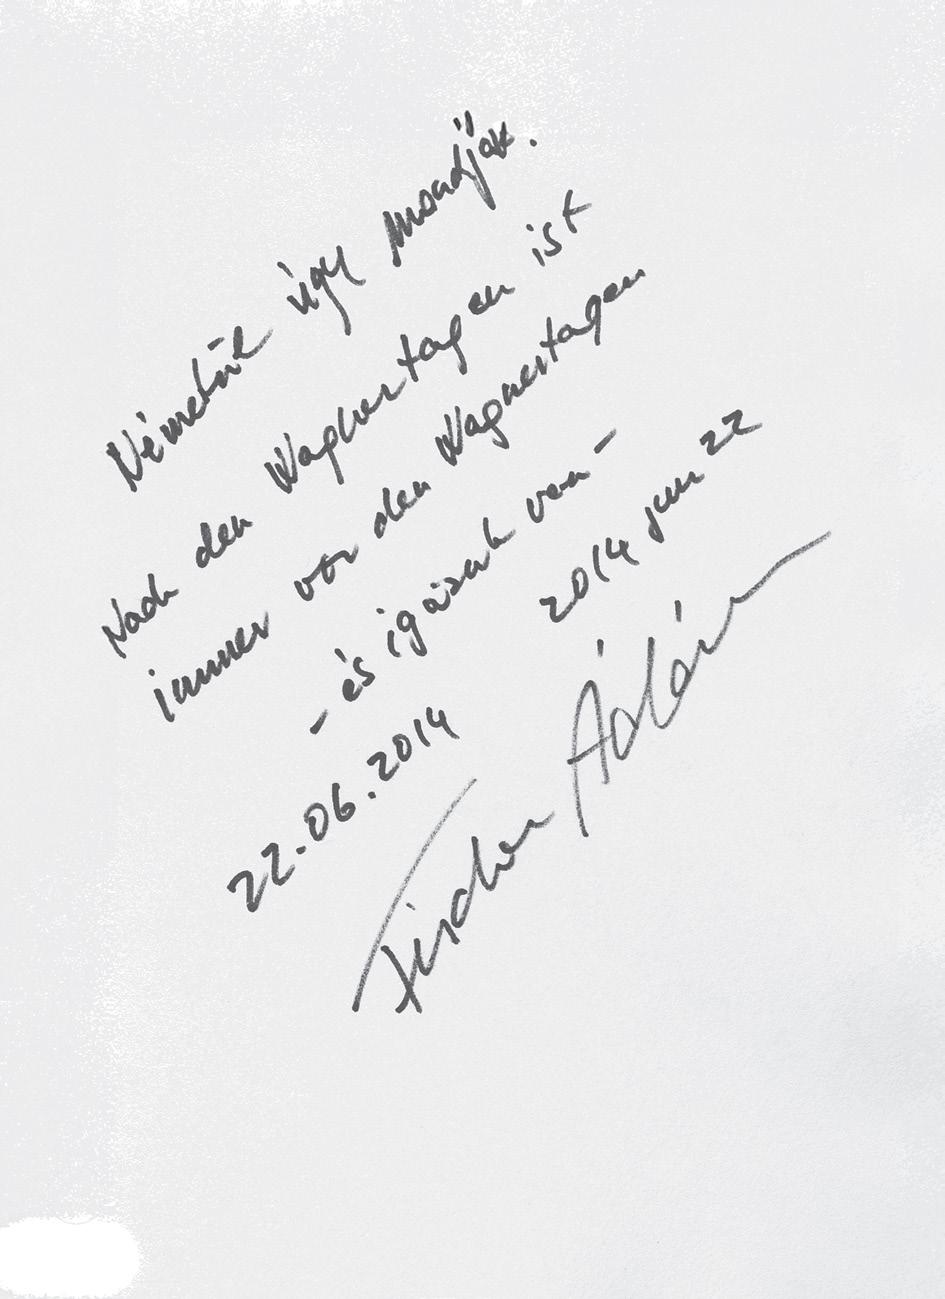 Németül úgy mondják.
Nach den Wagnertagen ist
immer vor den Wagnertagen
- és igazuk van -
22.06.2014 2014 jun 22
Fischer Ádám